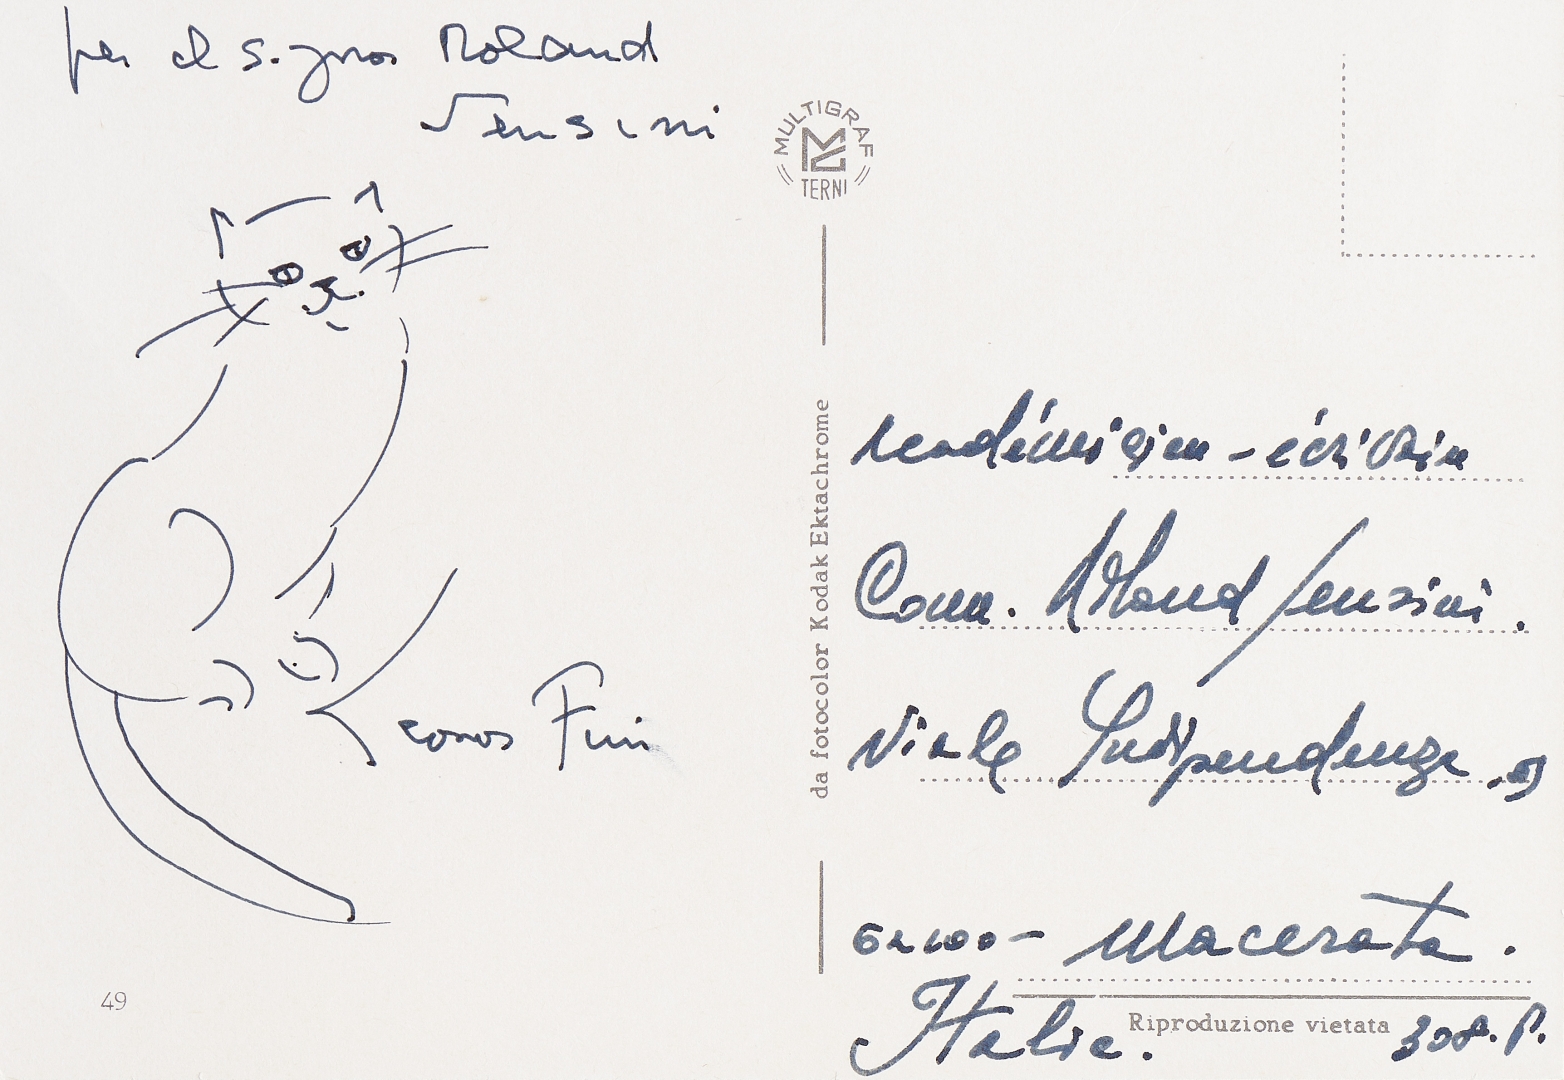 per il signor Roland
Sensini
Leonor Fini
49
MULTIGRAF
TERNI
da fotocolor Kodak Ektachrome
académicien - écrivain
Comm. Roland Sensini.
Viale Indipendenza
62100 - Macerata.
Italie.
Riproduzione vietata